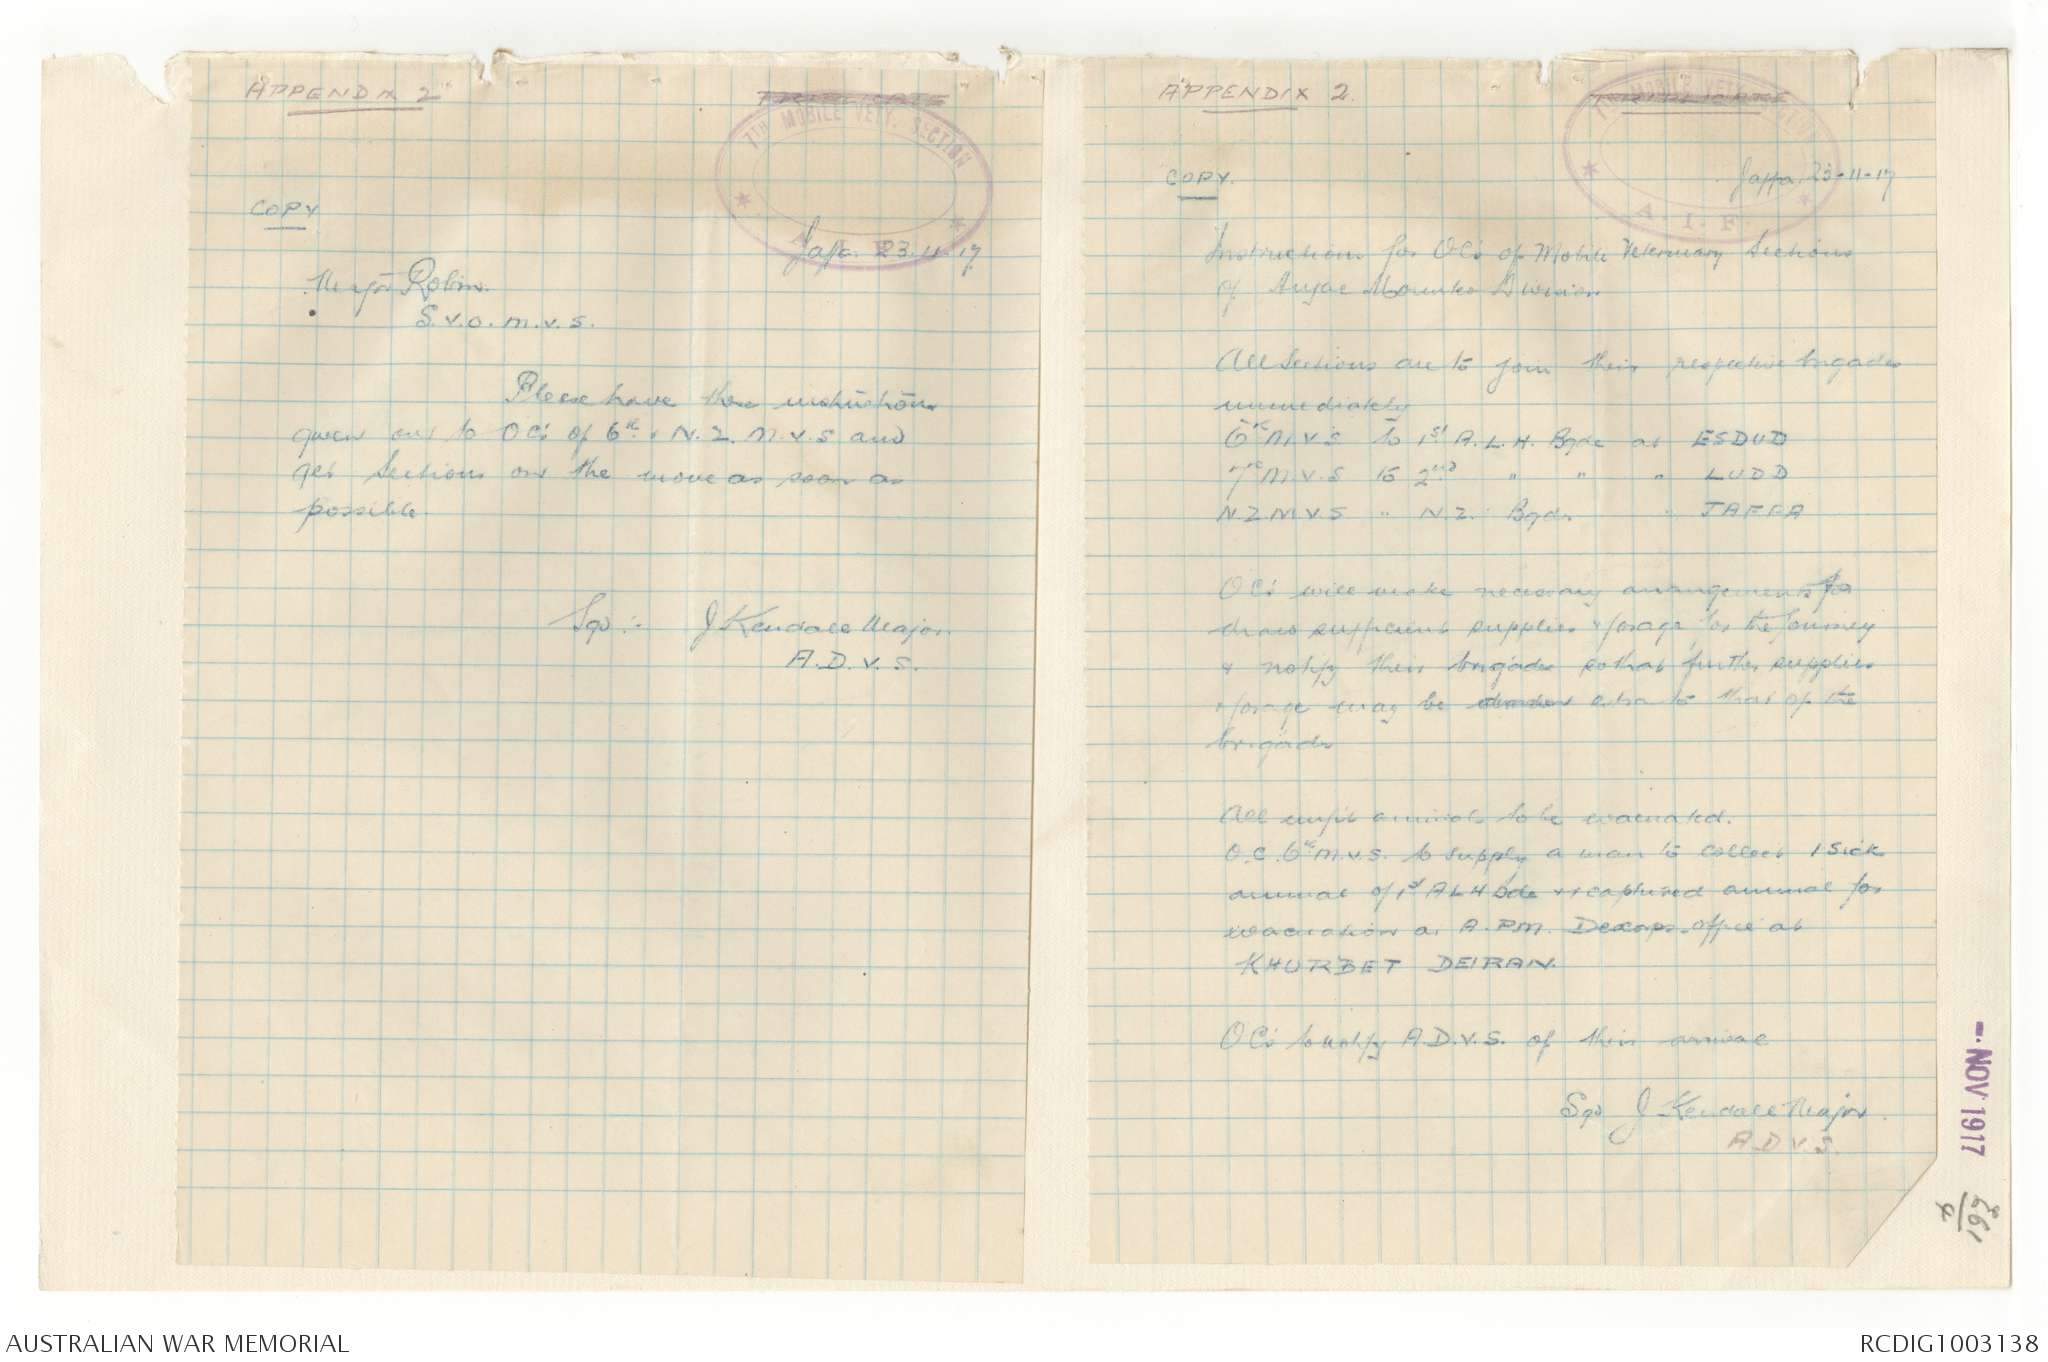 APPENDIX 2
TRIPLICATE
7TH MOBILE VETY. SECTION
A.I.F.
COPY
Jaffa. 23.11.17
Major Robin.
S.V.O. M.V.S.
Please have these instructions
given out to OC's of 6th & N.Z. M.V.S and
get Sections on the move as soon as
possible.
Sgd :- J Kendall Major.
A.D.V.S.
"APPENDIX 2."
TRIPLICATE
7TH MOBILE VETY. SECTION
A.I.F.
COPY.
Jaffa. 23-11-17
Instructions for OC's of Mobile Veterinary Sections
of Anzac Mounted Division
All Sections are to join their respective brigades
immediately
6th M.V.S to 1st A.L.H. Bgde at ESDUD
7th M.V.S to 2nd " " " LUDD
N Z M.V.S " N.Z. Bgde " JAFFA
OC's will make necessary arrangements to
draw sufficient supplies & forage for the Journey
& notify their brigades so that further supplies
& forage may be extra to that of the
brigade
All unfit animals to be evacuated.
O.C. 6th M.V.S. to supply a man to collect 1 Sick
animal of 1st A L H Bde & 1 captured animal for
evacuation at A.P.M. Descorps. office at
KHURBET DEIRAN.
OC's to notify A.D.V.S. of their arrival
Sgd J Kendall Major.
A.D.V.S.
- NOV 1917
AUSTRALIAN WAR MEMORIAL
RCDIG1003138